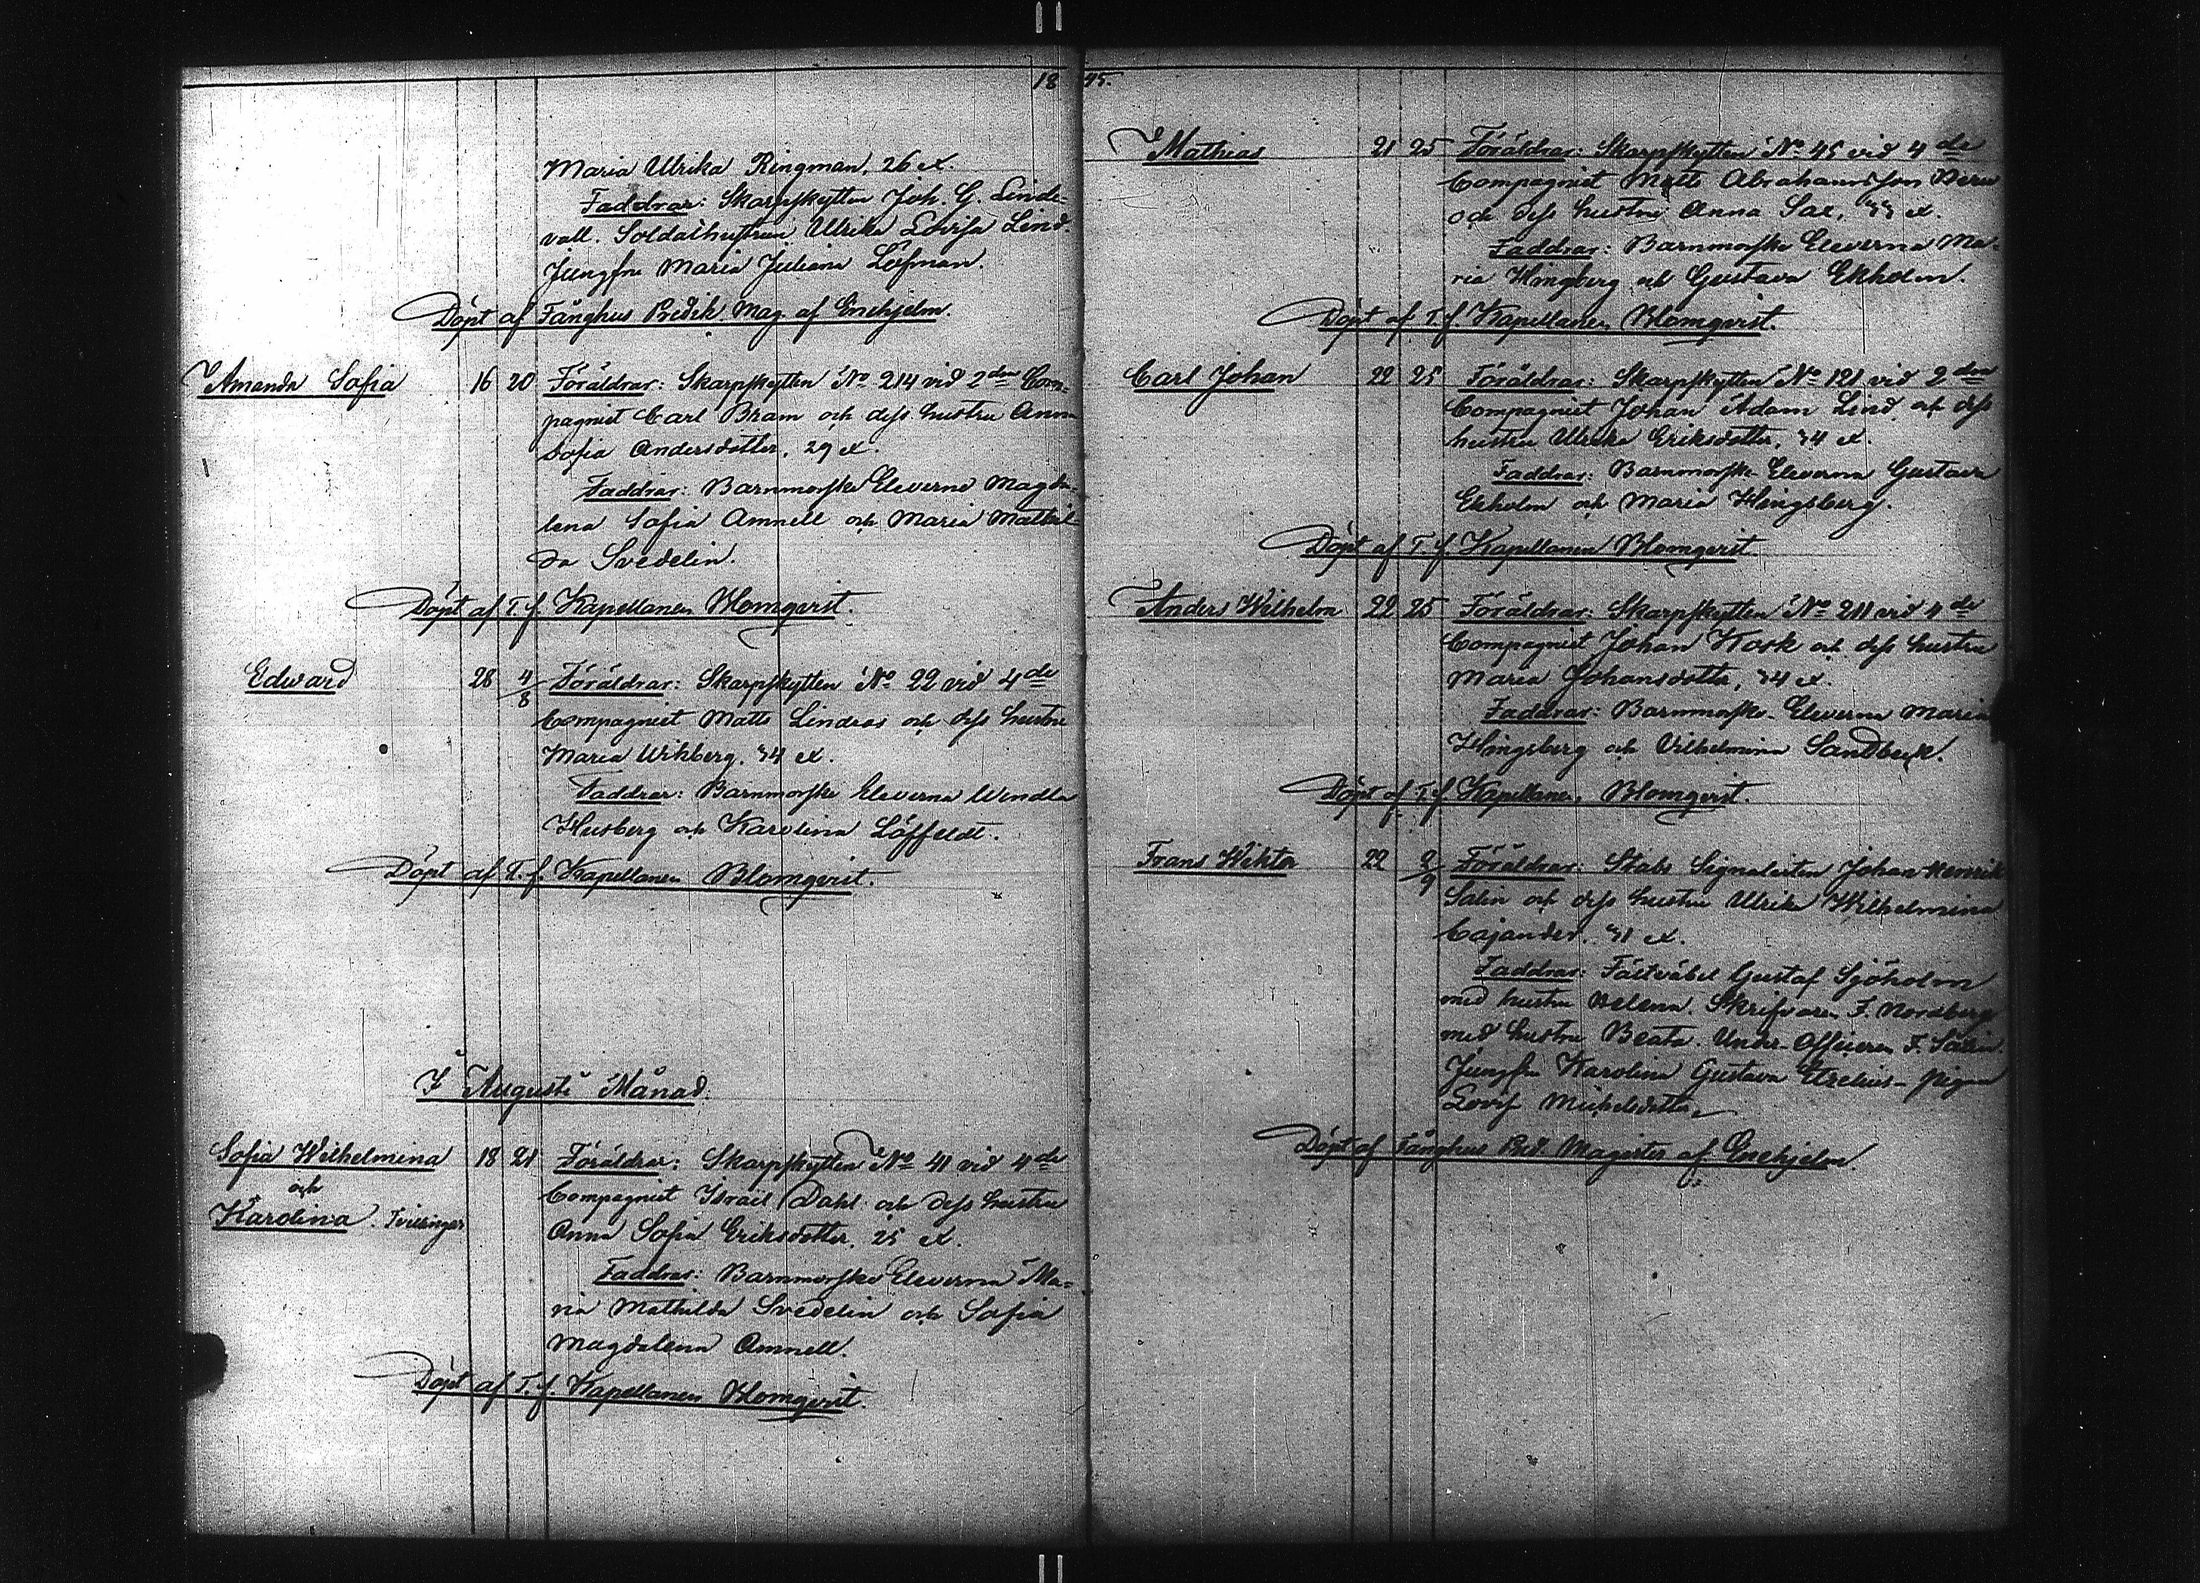 1845.
Maria Ulrika Ringman, 26 et.
Faddrar: Skarpskytten Joh. G. Linde-
vall. Soldathustrun Ulrika Lovisa Lind.
Jungfru Maria Juliana Löfman.
Döpt af Fånghus Predik. Mag. af Enehjelm.
Amanda Sofia 16 20 Föräldrar: Skarpskytten No 214 vid 2den Com-
pagniet Carl Bram och dess hustru Anna
Sofia Andersdotter, 29 et.
Faddrar: Barnmorske Eleverne Magda-
lena Sofia Amnell och Maria Mathil-
da Svedelin.
Döpt af T. f. Kapellanen Blomqvist.
Edward 28 4/8 Föräldrar: Skarpskytten No 22 vid 4de
Compagniet Matts Lindros och dess hustru
Maria Wikberg. 34 et.
Faddrar: Barnmorske Eleverna Wendla
Husberg och Karolina Löffeldt.
Döpt af T. f. Kapellanen Blomqvist.
I Augusti Månad.
Sofia Wilhelmina 18 21 Föräldrar: Skarpskytten No 41 vid 4de
och Compagniet Israel Dahl och dess hustru
Karolina. Tvillingar Anna Sofia Eriksdotter, 25 et.
Faddrar: Barnmorske Eleverna Ma-
ria Mathilda Svedelin och Sofia
Magdalena Amnell.
Döpt af T. f. Kapellanen Blomqvist.
Mathias 21 25 Föräldrar: Skarpskytten No 45 vid 4de
Compagniet Matts Abrahamsson
och dess hustru Anna Sax, 33 et.
Faddrar: Barnmorske Eleverna Ma-
ria Klingberg och Gustava Ekholm.
Döpt af T. f. Kapellanen Blomqvist.
Carl Johan 22 25 Föräldrar: Skarpskytten No 121 vid 2den
Compagniet Johan Adam Lind och dess
hustru Ulrika Eriksdotter, 34 et.
Faddrar: Barnmorske Eleverna Gustava
Ekholm och Maria Klingsberg.
Döpt af T. f. Kapellanen Blomqvist
Anders Wilhelm 22 25 Föräldrar: Skarpskytten No 211 vid 4de
Compagniet Johan Kosk och dess hustru
Maria Johansdotter, 34 et.
Faddrar: Barnmorske-Eleverna Maria
Klingsberg och Vilhelmina Sandbeck.
Döpt af T. f. Kapellanen Blomqvist.
Frans Wiktor 22 2/9 Föräldrar: Stabs Signalisten Johan Henrik
Salin och dess hustru Ulrika Wilhelmina
Cajander. 31 et.
Faddrar: Fältväbel Gustaf Sjöholm
med hustru Helena. Skrifvaren F. Nordberg
med hustru Beata. Under-Officeren F. Salin.
Jungfru Karolina Gustava Urelius - pigan
Lovisa Michelsdotter
Döpt af Fånghus Pred. Magister af Enehjelm.